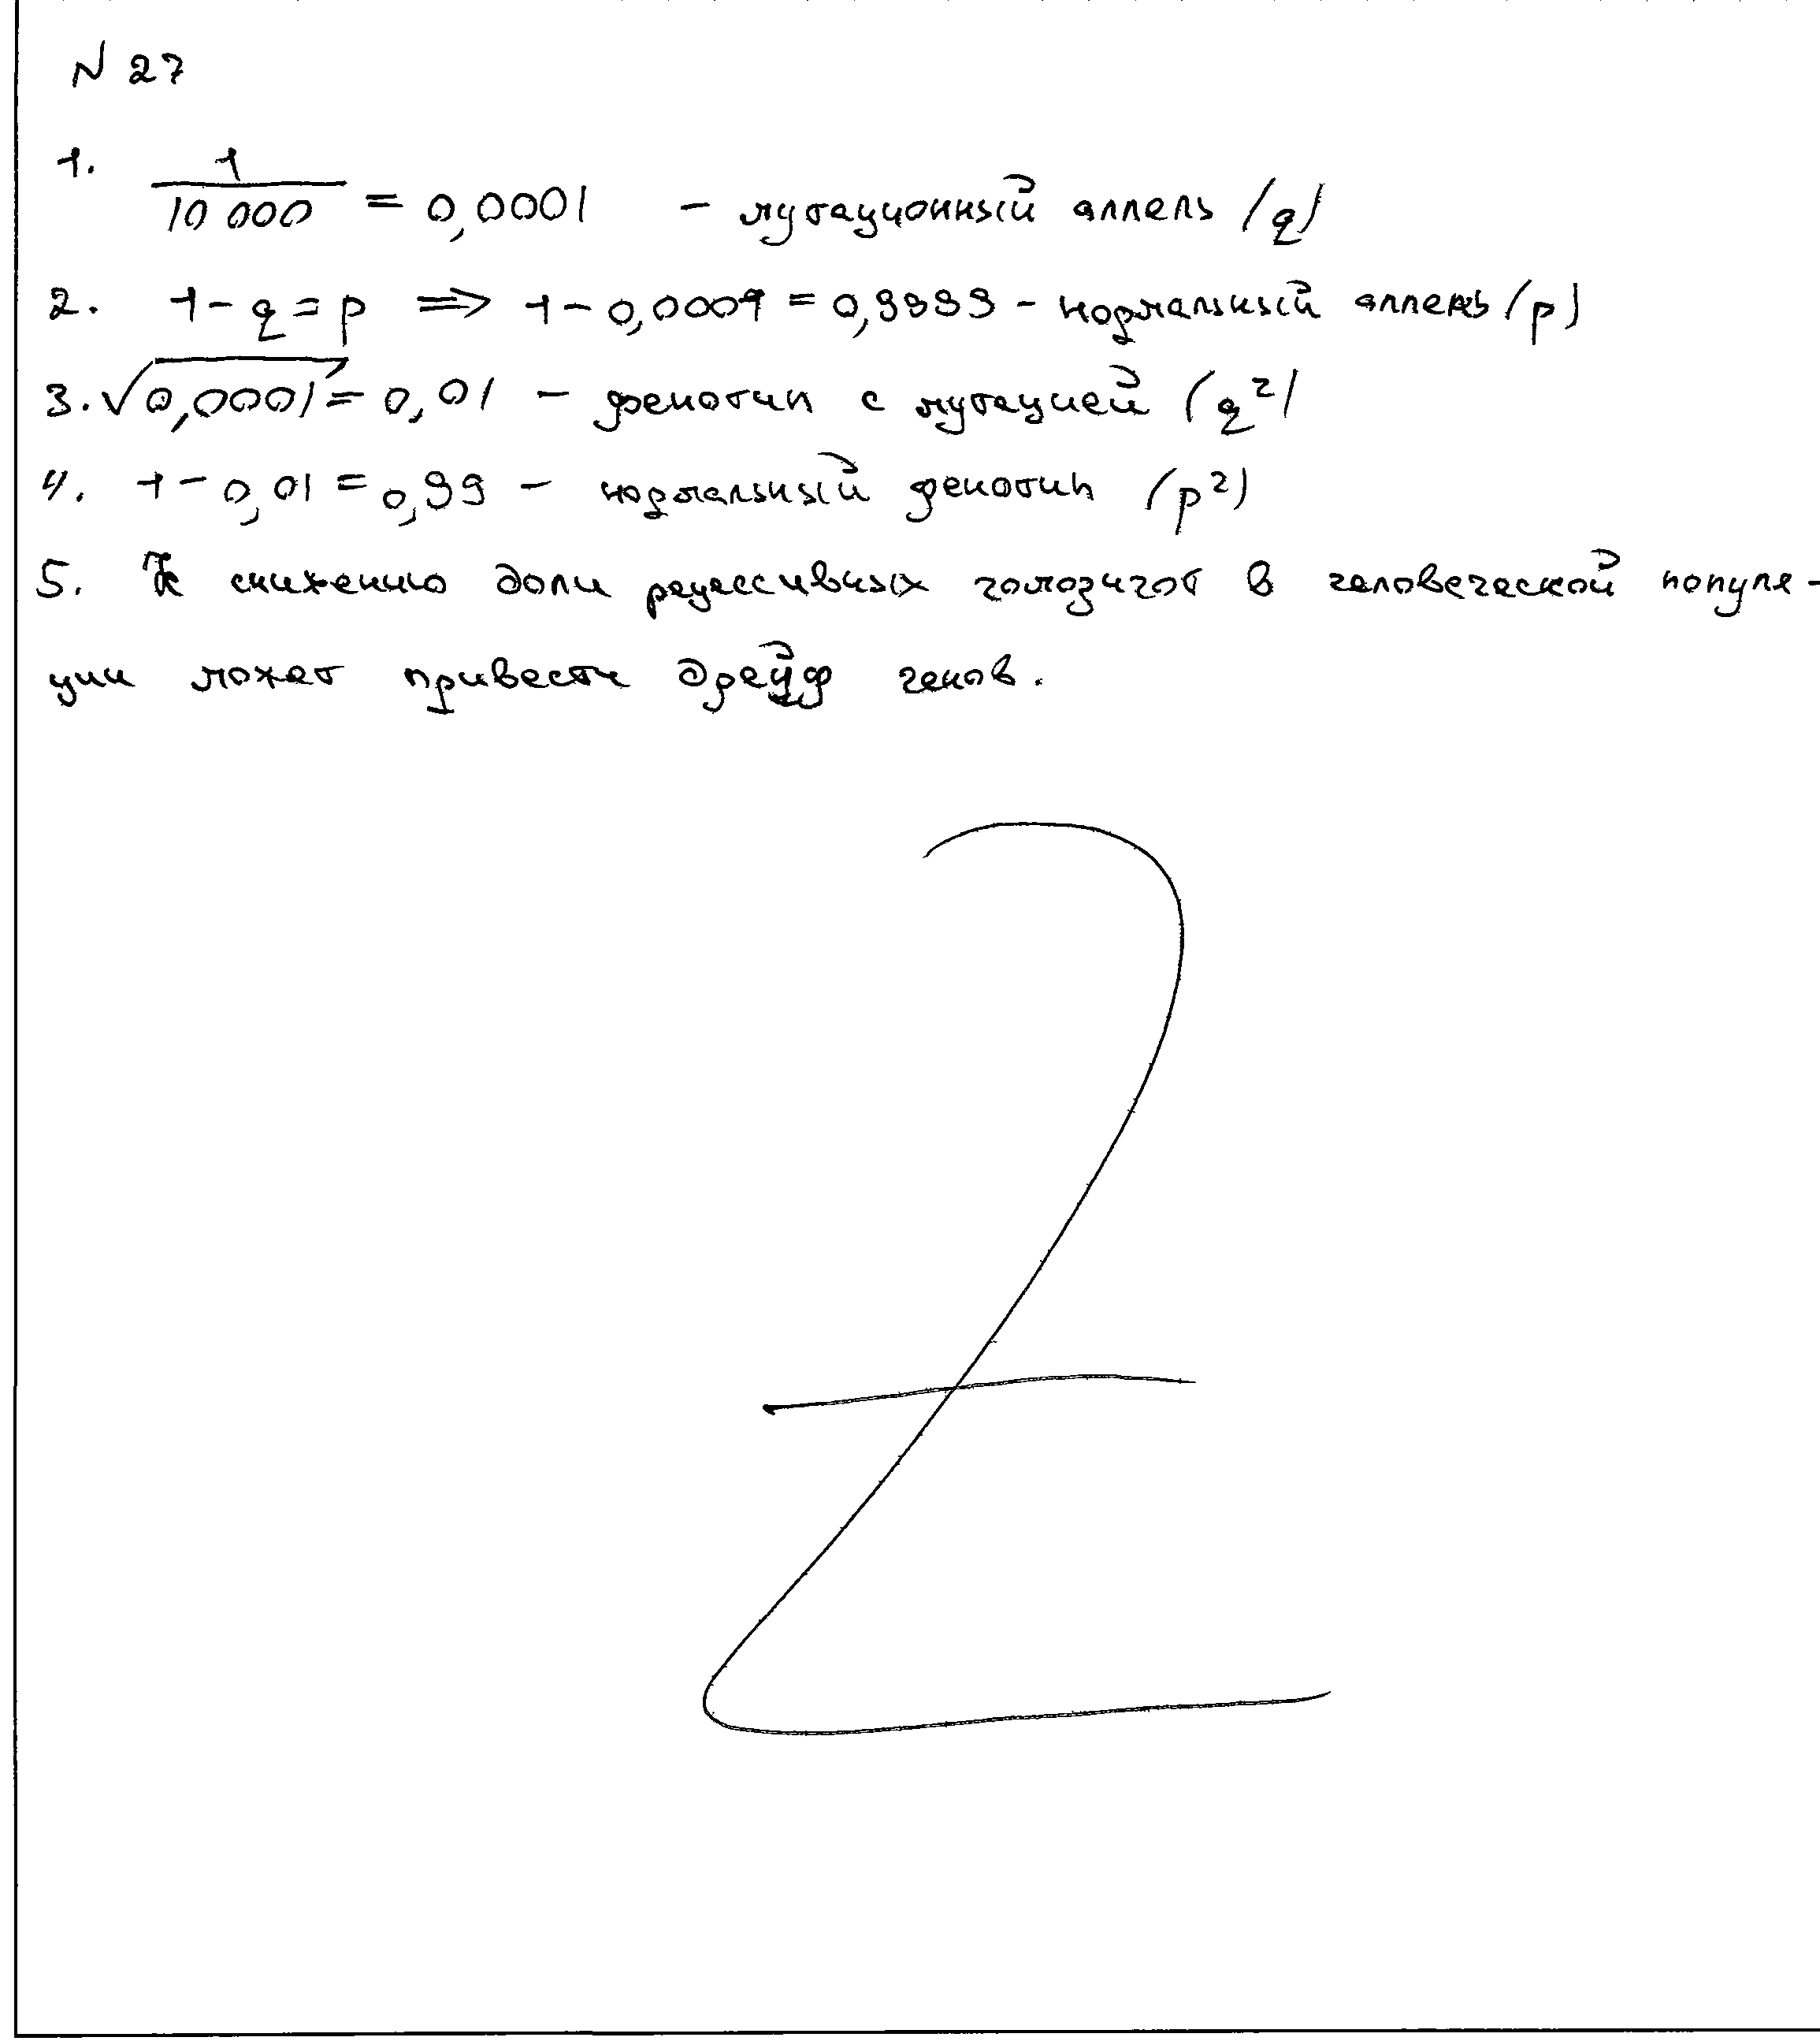 N 27
1. 1/10 000 = 0,0001 - мутационный аллель (q)
2. 1 - q = p => 1 - 0,0001 = 0,9999 - нормальный аллель (p)
3. √0,0001 = 0,01 - фенотип с мутацией (q²)
4. 1 - 0,01 = 0,99 - нормальный фенотип (p²)
5. К снижению доли рецессивных гомозигот в человеческой популя-
ции может привести дрейф генов.